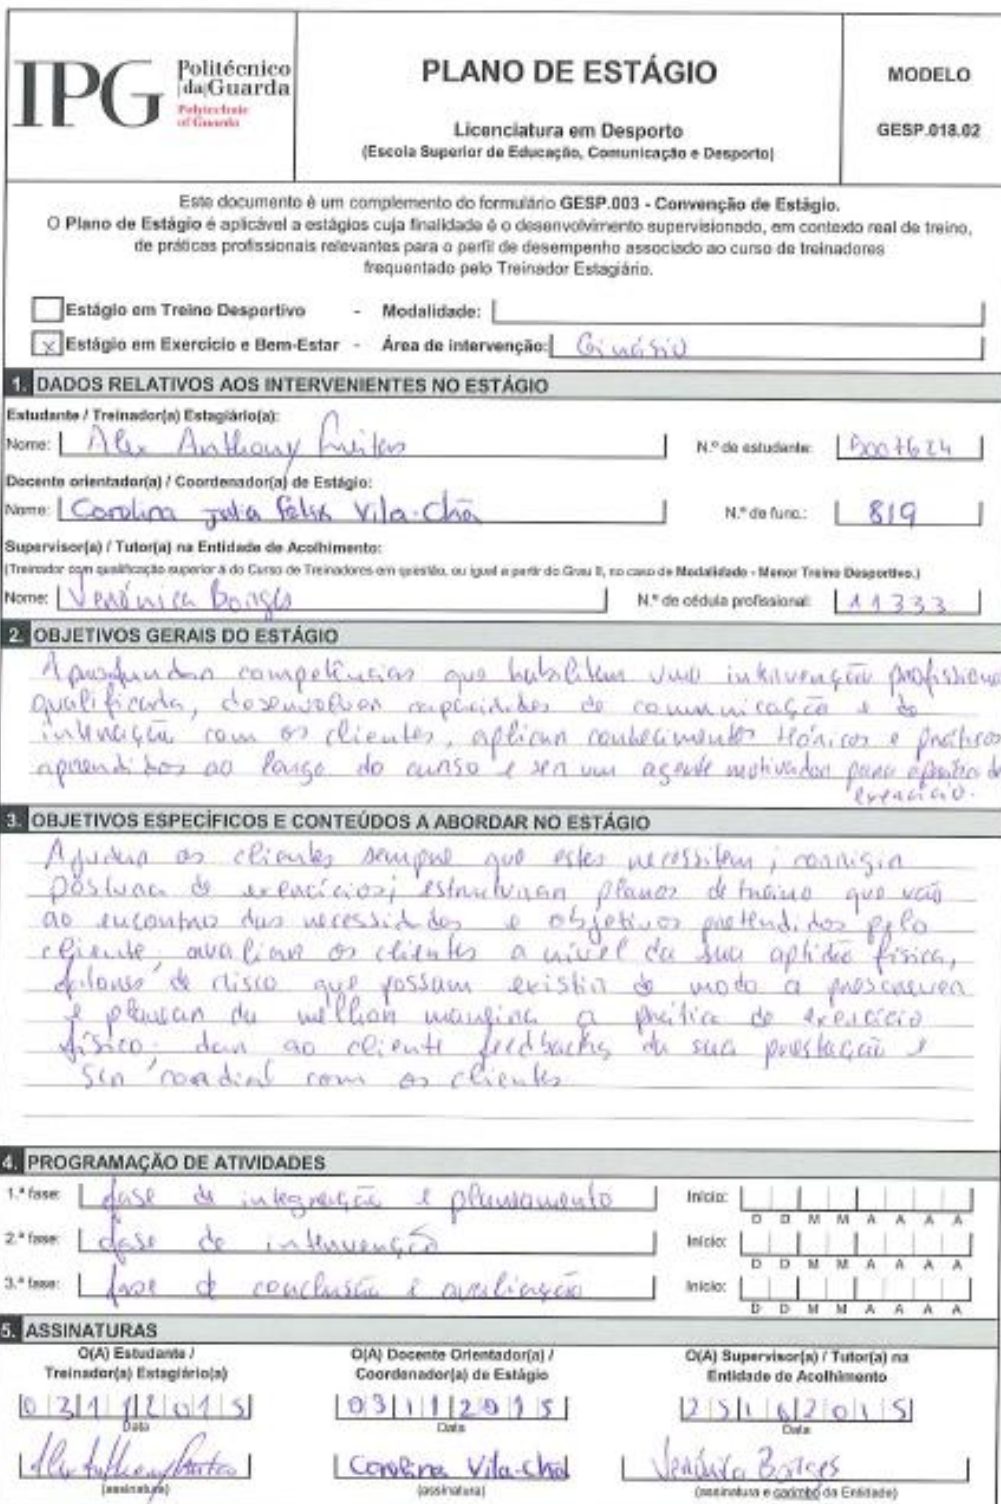 IPG Politécnico
da Guarda
Polytechnic
of Guarda
PLANO DE ESTÁGIO
Licenciatura em Desporto
(Escola Superior de Educação, Comunicação e Desporto)
MODELO
GESP.018.02
Este documento é um complemento do formulário GESP.003 - Convenção de Estágio.
O Plano de Estágio é aplicável a estágios cuja finalidade é o desenvolvimento supervisionado, em contexto real de treino,
de práticas profissionais relevantes para o perfil de desempenho associado ao curso de treinadores
frequentado pelo Treinador Estagiário.
Estágio em Treino Desportivo - Modalidade:
x Estágio em Exercício e Bem-Estar - Área de intervenção: Ginásio
1. DADOS RELATIVOS AOS INTERVENIENTES NO ESTÁGIO
Estudante / Treinador(a) Estagiário(a):
Nome: Alex Anthony Freitas N.º de estudante: 5007624
Docente orientador(a) / Coordenador(a) de Estágio:
Nome: Carolina Júlia Félix Vila-Chã N.º de func.: 819
Supervisor(a) / Tutor(a) na Entidade de Acolhimento:
(Treinador com qualificação superior à do Curso de Treinadores em questão, ou igual a partir do Grau II, no caso de Modalidade - Menor Treino Desportivo.)
Nome: Verónica Borges N.º de cédula profissional: 11333
2. OBJETIVOS GERAIS DO ESTÁGIO
Aprofundar competências que habilitem uma intervenção profissional
qualificada, desenvolver capacidades de communicação e de
interação com os clientes, aplicar conhecimentos teóricos e práticos
aprendidos ao longo do curso e ser um agente motivador para a prática de
exercício.
3. OBJETIVOS ESPECÍFICOS E CONTEÚDOS A ABORDAR NO ESTÁGIO
Ajudar os clientes sempre que estes necessitem; corrigir
postura de exercícios; estruturar planos de treino que vão
ao encontro das necessidades e objetivos pretendidos pelo
cliente, avaliar os clientes a nível da sua aptidão física,
de risco que possam existir de modo a prescrever
e planear da melhor maneira a prática de exercício
físico; dar ao cliente feedbacks da sua prestação e
ser cordial com os clientes
4. PROGRAMAÇÃO DE ATIVIDADES
1.ª fase: fase de integração e planeamento Início:
D D M M A A A A
2.ª fase: fase de intervenção Início:
D D M M A A A A
3.ª fase: fase de conclusão e avaliação Início:
D D M M A A A A
5. ASSINATURAS
O(A) Estudante /
Treinador(a) Estagiário(a)
O(A) Docente Orientador(a) /
Coordenador(a) de Estágio
O(A) Supervisor(a) / Tutor(a) na
Entidade de Acolhimento
03112015 03112015
Data Data Data
Alex Anthony Freitas Carolina Vila-Chã Verónica Borges
(assinatura) (assinatura) (assinatura e carimbo da Entidade)